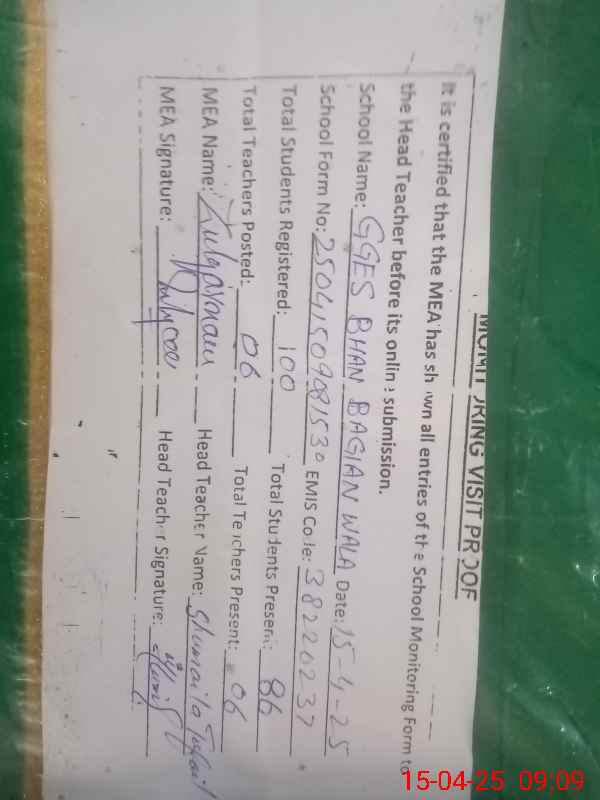 MONITORING VISIT PROOF
It is certified that the MEA has shown all entries of the School Monitoring Form to
the Head Teacher before its online submission.
School Name: GGES BHAN BAGIAN WALA Date: 15-4-25
School Form No: 25041509081530 EMIS Code: 38220237
Total Students Registered: 100 Total Students Present: 86
Total Teachers Posted: 06 Total Teachers Present: 06
MEA Name: Head Teacher Name: Shumaila Tufail
MEA Signature: Head Teacher Signature:
15-04-25 09:09